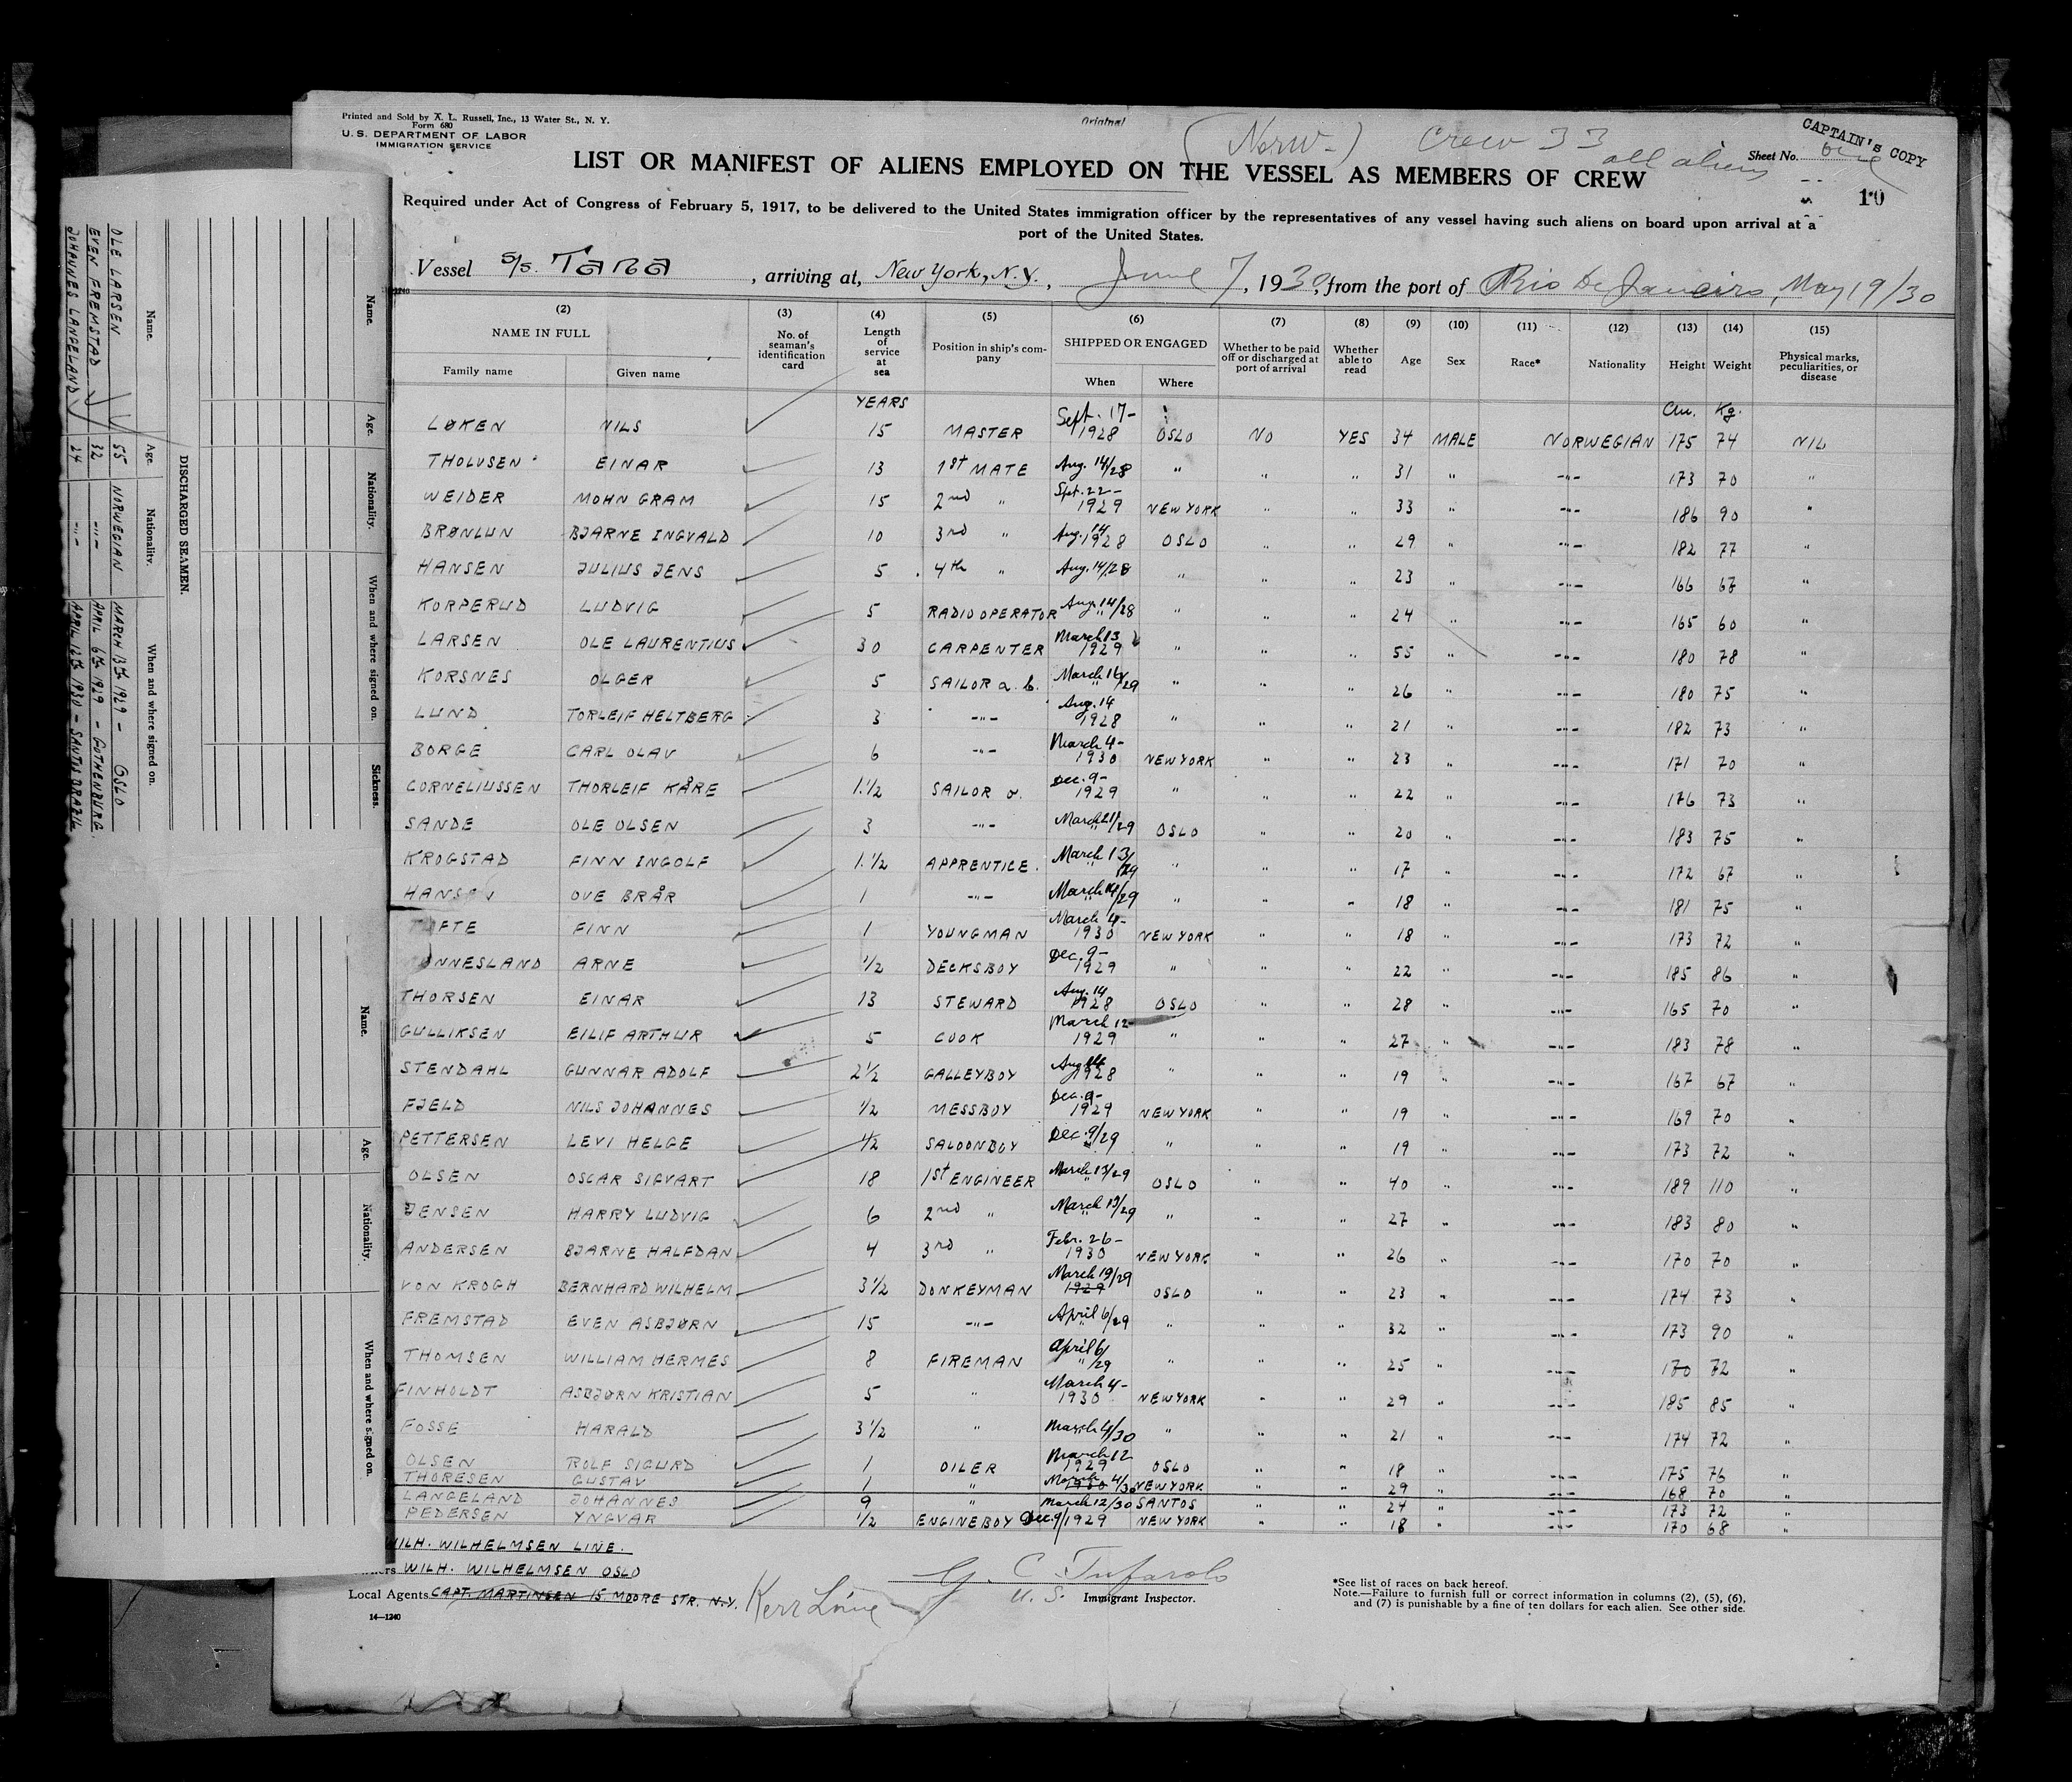 Printed and Sold by A. L. Russell, Inc., 13 Water St., N. Y.
Form 680
U. S. DEPARTMENT OF LABOR
IMMIGRATION SERVICE
Original
(Norw-)
Crew 33
all aliens
CAPTAIN'S COPY
Sheet No. one
10
LIST OR MANIFEST OF ALIENS EMPLOYED ON THE VESSEL AS MEMBERS OF CREW
Required under Act of Congress of February 5, 1917, to be delivered to the United States immigration officer by the representatives of any vessel having such aliens on board upon arrival at a
port of the United States.
Vessel S/S. Tana, arriving at, New York, N.Y., June 7, 1930, from the port of Rio De Janeiro, May 19/30
(2) (3) (4) (5) (6) (7) (8) (9) (10) (11) (12) (13) (14) (15)
NAME IN FULL
Family name Given name
No. of seaman's identification card
Length of service at sea
Position in ship's company
SHIPPED OR ENGAGED
When Where
Whether to be paid off or discharged at port of arrival
Whether able to read
Age Sex Race* Nationality Height Weight
Physical marks, peculiarities, or disease
YEARS Cm. Kg.
LØKEN NILS 15 MASTER Sept. 17- 1928 OSLO NO YES 34 MALE NORWEGIAN 175 74 NIL
THOLUSEN EINAR 13 1st MATE Aug. 14/28 " " " 31 " -"- 173 70 "
WEIDER MOHN GRAM 15 2nd " Sept. 22- 1929 NEW YORK " " 33 " -"- 186 90 "
BRØNLUN BJARNE INGVALD 10 3rd " Aug. 14 1928 OSLO " " 29 " -"- 182 77 "
HANSEN JULIUS JENS 5 4th " Aug. 14/28 " " " 23 " -"- 166 67 "
KORPERUD LUDVIG 5 RADIO OPERATOR Aug. 14/28 " " " 24 " -"- 165 60 "
LARSEN OLE LAURENTIUS 30 CARPENTER March 13 1929 " " " 55 " -"- 180 78 "
KORSNES OLGER 5 SAILOR a. b. March 16/29 " " " 26 " -"- 180 75 "
LUND TORLEIF HELTBERG 3 -"- Aug. 14 1928 " " " 21 " -"- 182 73 "
BORGE CARL OLAV 6 -"- March 4- 1930 NEW YORK " " 23 " -"- 171 70 "
CORNELIUSSEN THORLEIF KÅRE 1.1/2 SAILOR o. Dec. 9- 1929 " " " 22 " -"- 176 73 "
SANDE OLE OLSEN 3 -"- March 21/29 OSLO " " 20 " -"- 183 75 "
KROGSTAD FINN INGOLF 1.1/2 APPRENTICE. March 13/29 " " " 17 " -"- 172 67 "
HANSEN OVE BRÅR 1 -"- March 14/29 " " " 18 " -"- 181 75 "
FINN 1 YOUNGMAN March 4- 1930 NEW YORK " " 18 " -"- 173 72 "
ARNE 1/2 DECKSBOY Dec. 9- 1929 " " " 22 " -"- 185 86 "
THORSEN EINAR 13 STEWARD Aug. 14 1928 OSLO " " 28 " -"- 165 70 "
GULLIKSEN EILIF ARTHUR 5 COOK March 12- 1929 " " " 27 " -"- 183 78 "
STENDAHL GUNNAR ADOLF 2 1/2 GALLEYBOY Aug 14 1928 " " " 19 " -"- 167 67 "
FJELD NILS JOHANNES 1/2 MESSBOY Dec. 9- 1929 NEW YORK " " 19 " -"- 169 70 "
PETTERSEN LEVI HELGE 1/2 SALOONBOY Dec. 9/29 " " 19 " -"- 173 72 "
OLSEN OSCAR SIGVART 18 1st ENGINEER March 13/29 OSLO " " 40 " -"- 189 110 "
JENSEN HARRY LUDVIG 6 2nd " March 13/29 " " " 27 " -"- 183 80 "
ANDERSEN BJARNE HALFDAN 4 3rd " Febr. 26- 1930 NEW YORK " " 26 " -"- 170 70 "
VON KROGH BERNHARD WILHELM 3 1/2 DONKEYMAN March 19/29 1929 OSLO " " 23 " -"- 174 73 "
FREMSTAD EVEN ASBJØRN 15 -"- April 6/29 " " " 32 " -"- 173 90 "
THOMSEN WILLIAM HERMES 8 FIREMAN April 6/29 " " " 25 " -"- 170 72 "
FINHOLDT ASBJØRN KRISTIAN 5 " March 4- 1930 NEW YORK " " 29 " -"- 185 85 "
FOSSE HARALD 3 1/2 " March 4/30 " " " 21 " -"- 174 72 "
OLSEN ROLF SIGURD 1 OILER March 12 1929 OSLO " " 18 " -"- 175 76 "
THORESEN GUSTAV 1 " March 4/30 1930 NEW YORK " " 29 " -"- 168 70 "
LANGELAND JOHANNES 9 " March 12/30 SANTOS " " 24 " -"- 173 72 "
PEDERSEN YNGVAR 1/2 ENGINEBOY Dec. 9/1929 NEW YORK " " 18 " -"- 170 68 "
WILH. WILHELMSEN LINE.
WILH. WILHELMSEN OSLO
Local Agents CAPT. MARTINSEN 15 MOORE STR. N.Y. Kerr Line
14—1240
G. C. Tufarolo
U. S. Immigrant Inspector.
*See list of races on back hereof.
Note.—Failure to furnish full or correct information in columns (2), (5), (6),
and (7) is punishable by a fine of ten dollars for each alien. See other side.
DISCHARGED SEAMEN.
Name. Age. Nationality. When and where signed on.
OLE LARSEN 55 NORWEGIAN MARCH 13th 1929 - OSLO
EVEN FREMSTAD 32 -"- APRIL 6th 1929 - GOTHENBURG.
JOHANNES LANGELAND 24 -"- APRIL 12th 1930 - SANTOS BRAZIL
Name. Age. Nationality. When and where signed on. Sickness.
Name. Age. Nationality. When and where signed on.